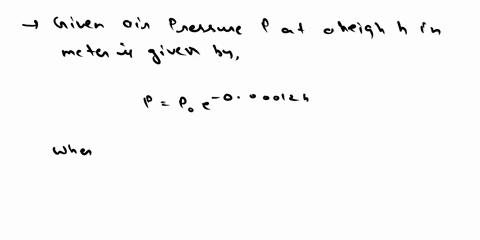 → Given air Pressure P at a heigh h in
meter is given by,
P = P₀ e^-0.00012h
wher